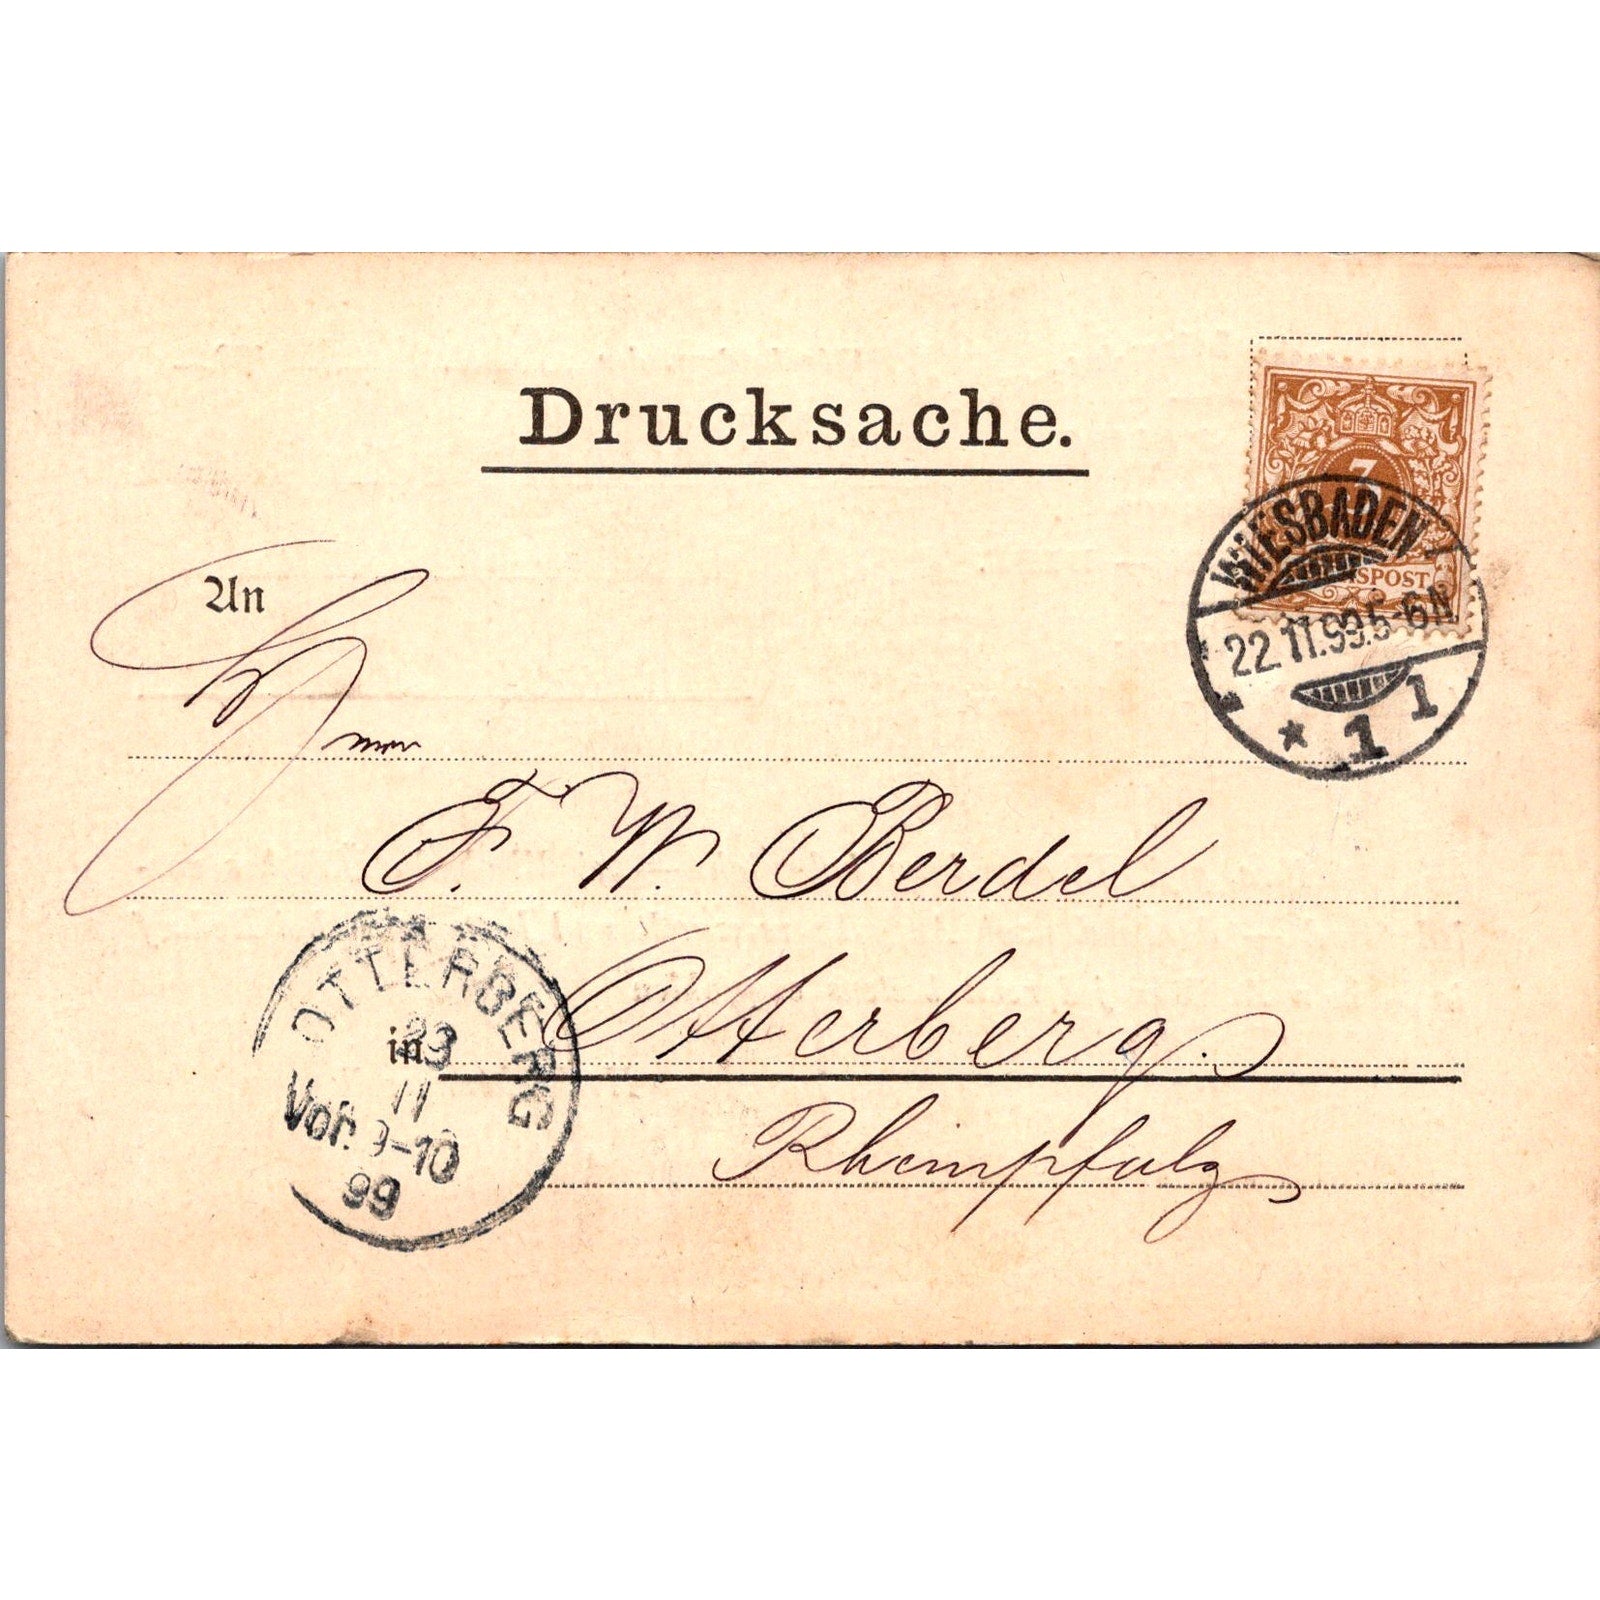 Drucksache.
3
REICHSPOST
WIESBADEN
22.11.99.5-6N
* 1 1
An
F. W. Berdel
OTTERBERG
23
11
Vor. 9-10
99
in Otterberg.
Rheinpfalz